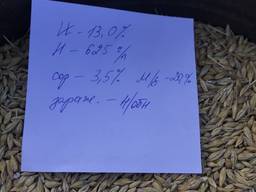 И - 13,0%
Н - 625 г/л
сор - 3,5% М/з - 20,%
зараж. - н/обн